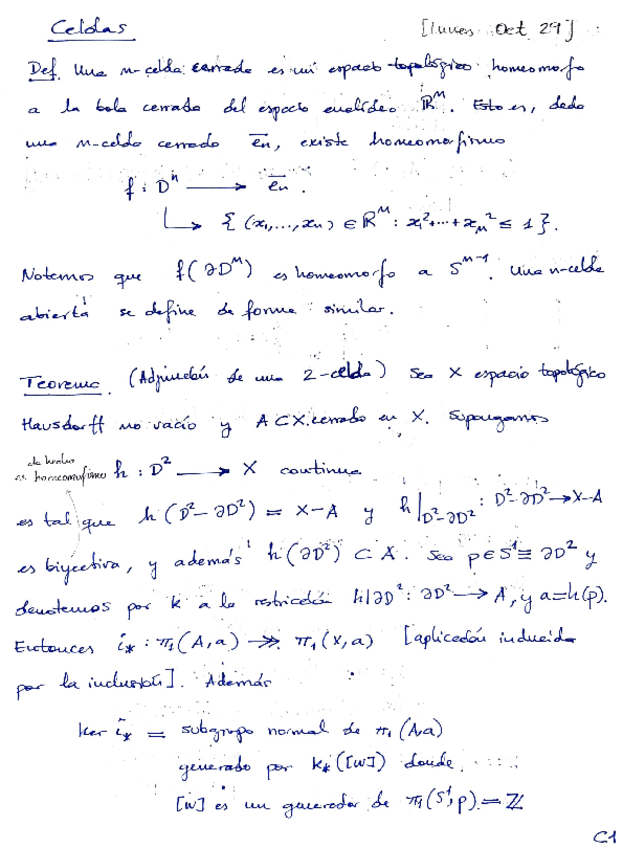 Celdas [Lunes Oct 29]
Def. Una n-celda cerrada es un espacio topológico homeomorfo
a la bola cerrada del espacio euclídeo ℝⁿ. Esto es, dada
una n-celda cerrada e̅n, existe homeomorfismo
f : Dⁿ ⟶ e̅n.
↳ { (x₁,...,xₙ) ∈ ℝⁿ : x₁²+...+xₙ² ≤ 1 }.
Notemos que f(∂Dⁿ) es homeomorfo a Sⁿ⁻¹. Una n-celda
abierta se define de forma similar.
Teorema. (Adjunción de una 2-celda) Sea X espacio topológico
Hausdorff no vacío y A ⊂ X cerrado en X. Supongamos
de hecho
es homeomorfismo h : D² ⟶ X continua
es tal que h(D²-∂D²) = X-A y h|D²-∂D² : D²-∂D² → X-A
es biyectiva, y además h(∂D²) ⊂ A. Sea p ∈ S¹ ≡ ∂D² y
denotemos por k a la restricción h|∂D² : ∂D² → A, y a=h(p).
Entonces i* : π₁(A,a) ↠ π₁(X,a) [aplicación inducida
por la inclusión]. Además
ker i* = subgrupo normal de π₁(A,a)
generado por k*([w]) donde
[w] es un generador de π₁(S¹,p) = ℤ
C1